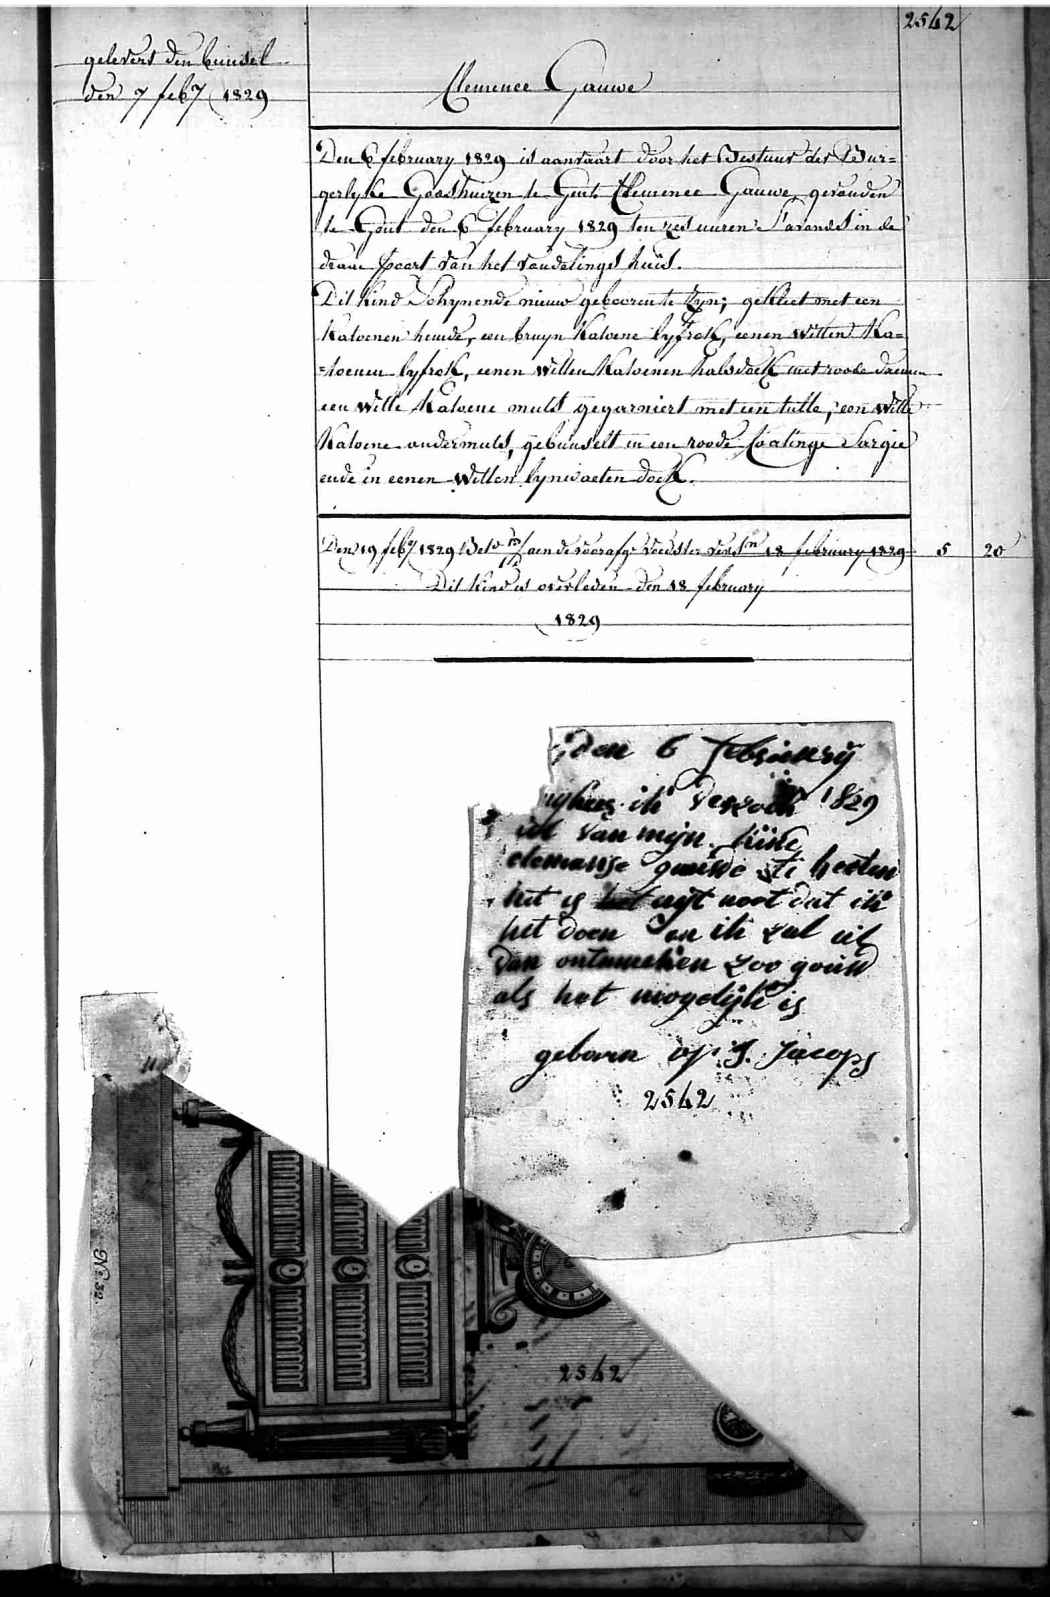 2542
gelevert den bunsel
den 7 feb.y 1829
Clemence Gauwe
Den 6 february 1829 is aanvaart door het Bestuur der Bur=
gerlyke Godshuizen te Gent Clemence Gauwe gevonden
te Gent den 6 february 1829 ten zes uuren 's avonds in de
draai poort van het vondelings huis.
Dit kind schynende nieuw gebooren te zyn; gekleet met een
katoenen hemde, een bruyn katoene lyfrok, eenen witten ka=
=toenen lyfrok, eenen witten katoenen halsdoek met roode
een witte katoene muts gegarniert met een tulle, een witte
katoene ondermuts, gebunselt in een roode sargie
ende in eenen witten lynwaeten doek.
Den 19 feb.y 1829 aen de voedster 18 february 1829 5 20
Dit kind is overleden den 18 february
1829
den 6 februarij
ik versoek 1829
van mijn kind
clemanse gauwe te heeten
het is het uijt noot dat ik
het doen en ik zal het
dan zoo gouw
als het mogelijk is
geboren op S. Jacops
2542
No. 32.
2542